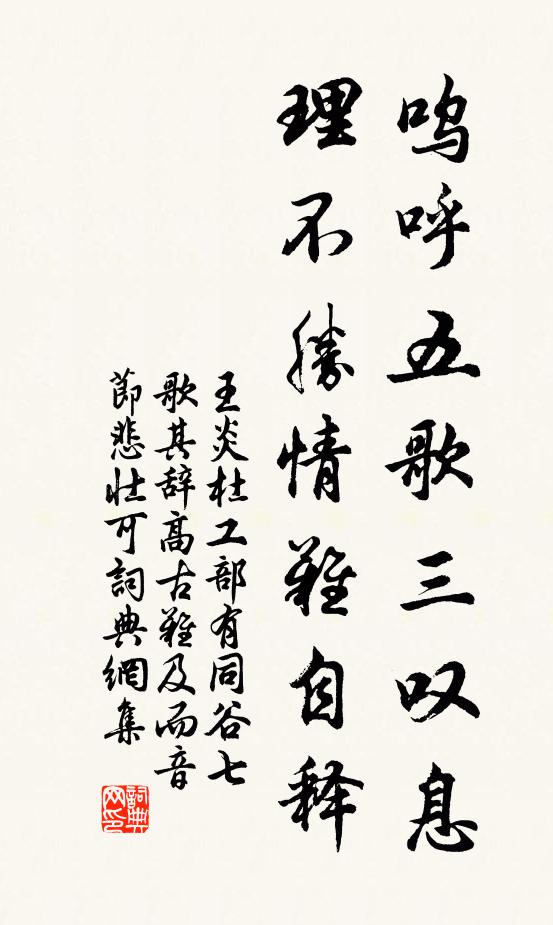 呜呼五歌三叹息
理不勝情難自释
王炎杜工部有同谷七
歌其辞高古難及而音
節悲壮可詞典網集
詞典
网印